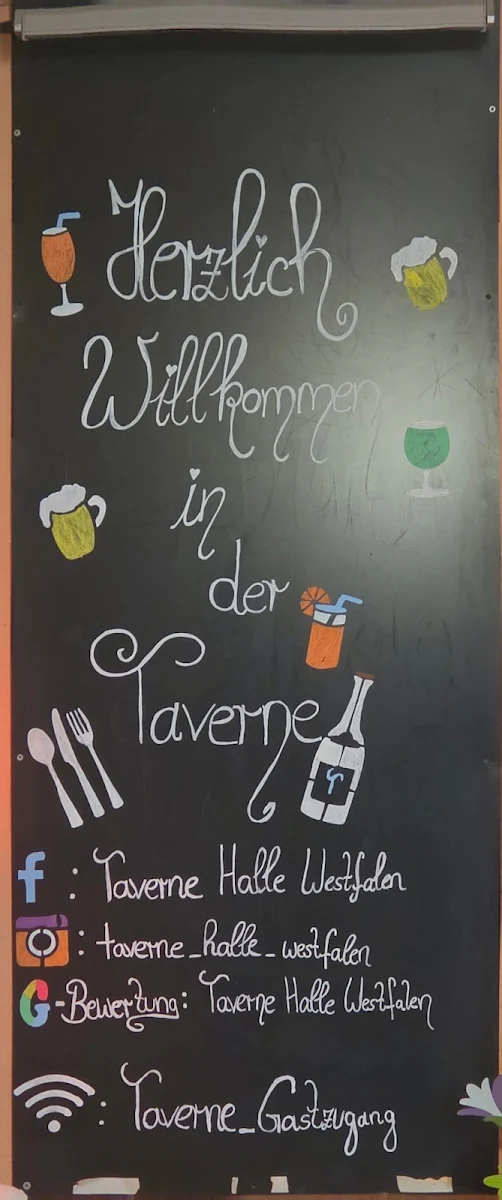 Herzlich
Willkommen
in
der
Taverne
f : Taverne Halle Westfalen
: taverne_halle_westfalen
G-Bewertung: Taverne Halle Westfalen
: Taverne_Gastzugang